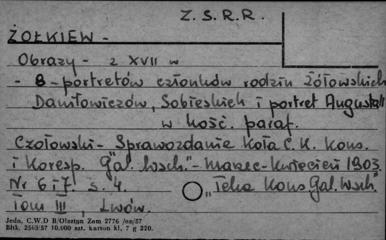 Z. S. R. R.
ŻÓŁKIEW -
Obrazy - z XVII w
- 8 - portretów członków rodzin Żółowskich
Daniłowiczów, Sobieskich i portret Augusta II
w kość. paraf.
Czołowski - Sprawozdanie Koła C. K. Kons.
i Koresp. "Gal. Wsch." - marzec-kwiecień 1903.
Nr 6 i 7. s. 4. "Teka Kons Gal. Wsch."
Tom III, Lwów.
Jedn. C.W.D B/Olsztyn Zam 2776 /aa/57
Błhk. 2563/57 10.000 szt. karton kl. 7 g 220.